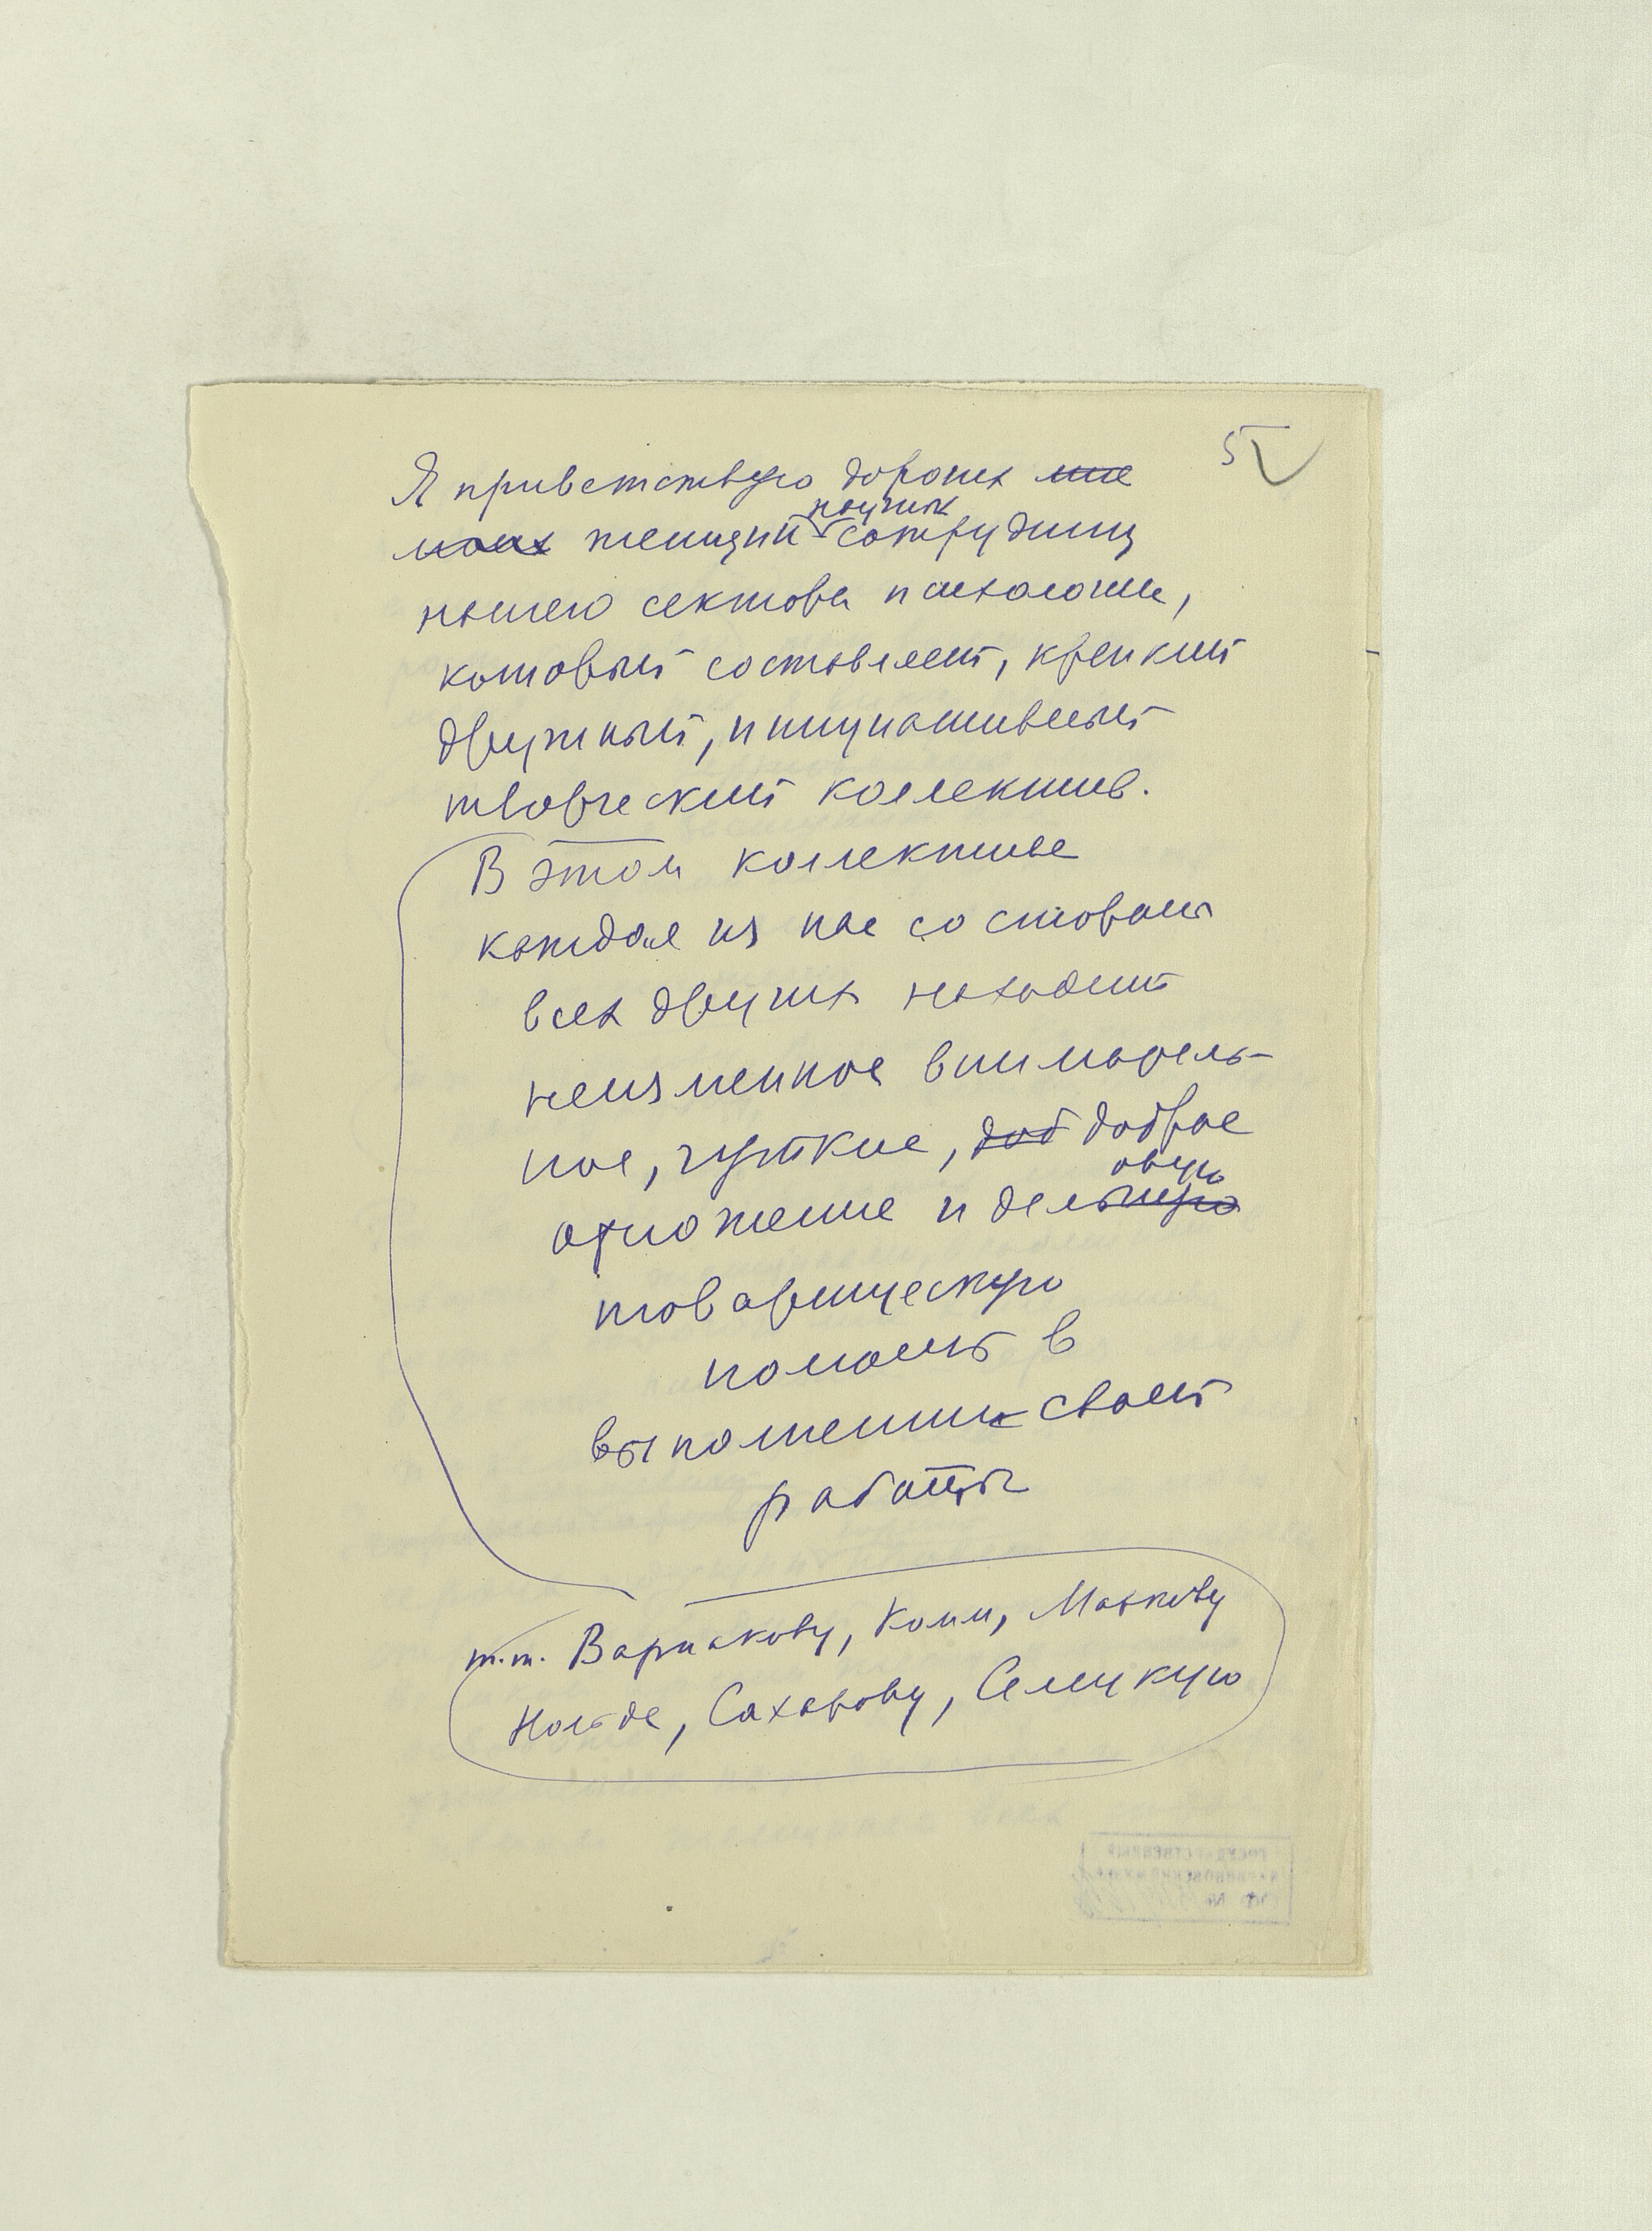 5
Я приветствую дорогих мне
моих женщин научных сотрудниц
нашего сектора психологии,
который составляет, крепкий
дружный, инициативный
творческий коллектив.
В этом коллективе
каждая из нас со стороны
всех других находит
неизменное вниматель-
ное, чуткое, доб доброе
отношение и деловую
товарищескую
помощь в
выполнении своей
работы
т.т. Варшакову, Комм, Маркову
Нольде, Сахарову, Селецкую